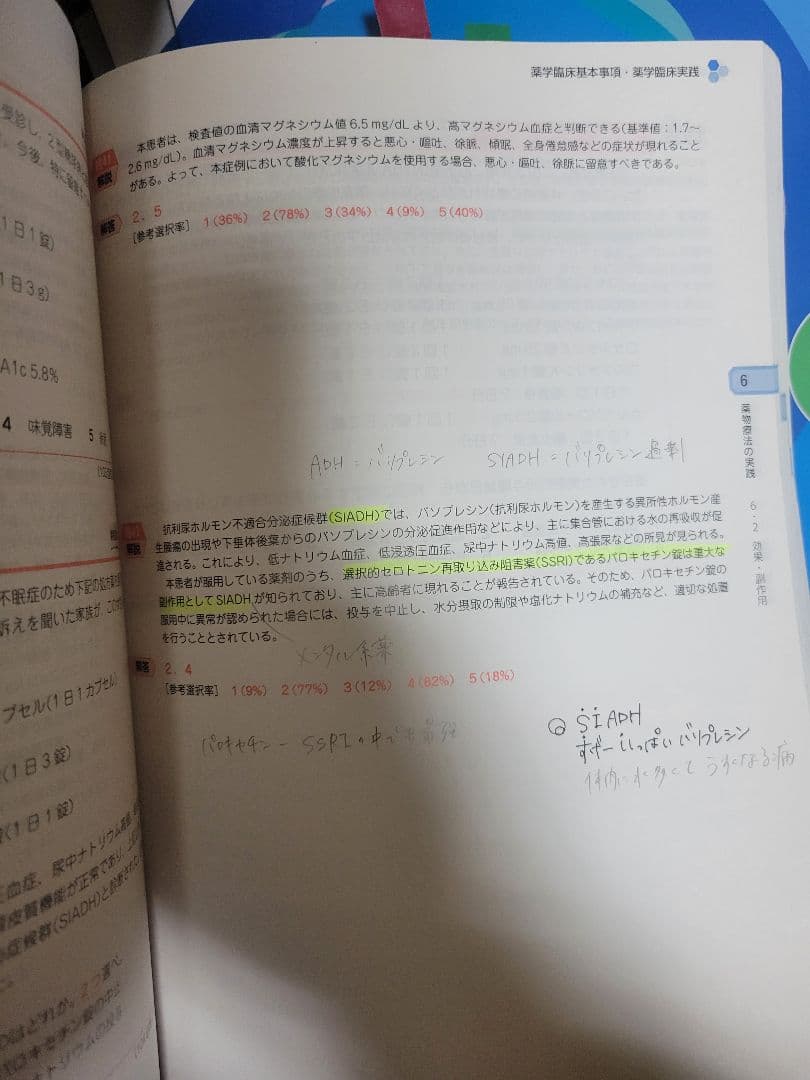 薬学臨床基本事項・薬学臨床実践
解説
本患者は、検査値の血清マグネシウム値6.5mg/dLより、高マグネシウム血症と判断できる(基準値：1.7〜
2.6mg/dL)。血清マグネシウム濃度が上昇すると悪心・嘔吐、徐脈、傾眠、全身倦怠感などの症状が現れること
がある。よって、本症例において酸化マグネシウムを使用する場合、悪心・嘔吐、徐脈に留意すべきである。
解答 2、5
［参考選択率］ 1(36%) 2(78%) 3(34%) 4(9%) 5(40%)
1日1錠)
1日3g)
A1c 5.8%
4 味覚障害 5
6
薬物療法の実践
6・2 効果・副作用
ADH = バソプレシン SIADH = バソプレシン過剰
解説
抗利尿ホルモン不適合分泌症候群(SIADH)では、バソプレシン(抗利尿ホルモン)を産生する異所性ホルモン産
生腫瘍の出現や下垂体後葉からのバソプレシンの分泌促進作用などにより、主に集合管における水の再吸収が促
進される。これにより、低ナトリウム血症、低浸透圧血症、尿中ナトリウム高値、高張尿などの所見が見られる。
本患者が服用している薬剤のうち、選択的セロトニン再取り込み阻害薬(SSRI)であるパロキセチン錠は重大な
副作用としてSIADHが知られており、主に高齢者に現れることが報告されている。そのため、パロキセチン錠の
服用中に異常が認められた場合には、投与を中止し、水分摂取の制限や塩化ナトリウムの補充など、適切な処置
を行うこととされている。
メンタル系薬
解答 2、4
［参考選択率］ 1(9%) 2(77%) 3(12%) 4(82%) 5(18%)
パロキセチン ー SSRIの中でも最強
SIADH
すげー いっぱい バソプレシン
体内に水多くて うすくなる病
不眠症のため下記の処方薬を
訴えを聞いた家族が、この
プセル(1日1カプセル)
(1日3錠)
(1日1錠)
血症、尿中ナトリウム高値
皮質機能が正常であり、
症候群(SIADH)と診断された
はどれか。2つ選べ。
ロキセチン錠の中止
トリウムの投与